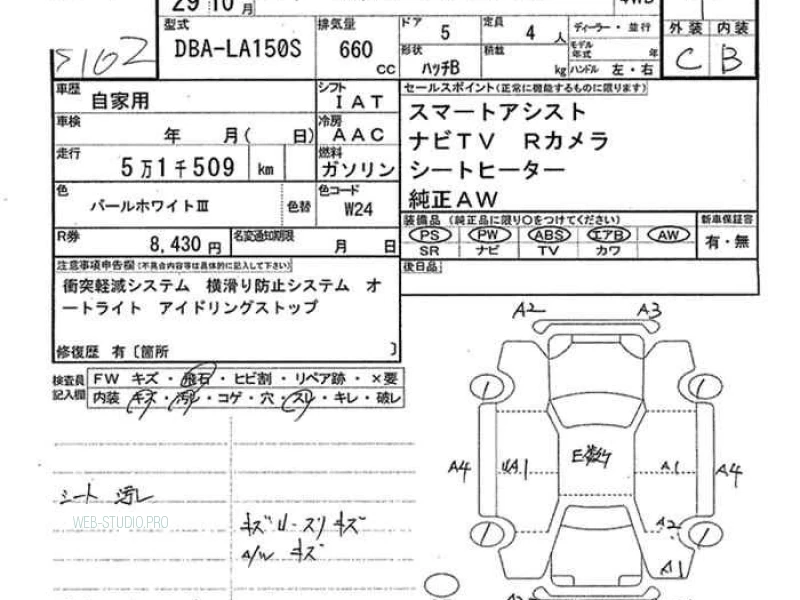 29 10 月
4WD
型式 排気量 ドア 5 定員 4 人 ディーラー・並行 外装 内装
5102 DBA-LA150S 660 cc 形状 ハッチB 積載 kg モデル年式 年 ハンドル 左・右 C B
車歴 自家用 シフト IAT
セールスポイント(正常に機能するものに限ります)
スマートアシスト
車検 年 月( 日) 冷房 AAC
ナビTV Rカメラ
走行 5万1千509 km 燃料 ガソリン
シートヒーター
純正AW
色 パールホワイトⅢ 色替 色コード W24
装備品 (純正品に限り○をつけてください) 新車保証書
PS PW ABS エアB AW 有・無
SR ナビ TV カワ
R券 8,430 円 名変通知期限 月 日
後日品
注意事項申告欄(不具合内容等は具体的に記入して下さい)
衝突軽減システム 横滑り防止システム オ
ートライト アイドリングストップ
修復歴 有〔箇所 〕
検査員記入欄
FW キズ・飛石・ヒビ割・リペア跡・×要
内装・キズ・汚レ・コゲ・穴・スレ・キレ・破レ
A2 A3
1 1
A4 A1 E数ケ A1 A4
シート 汚レ
WEB-STUDIO.PRO
キズ リースリキズ
A/W キズ
A2
1 1
A1